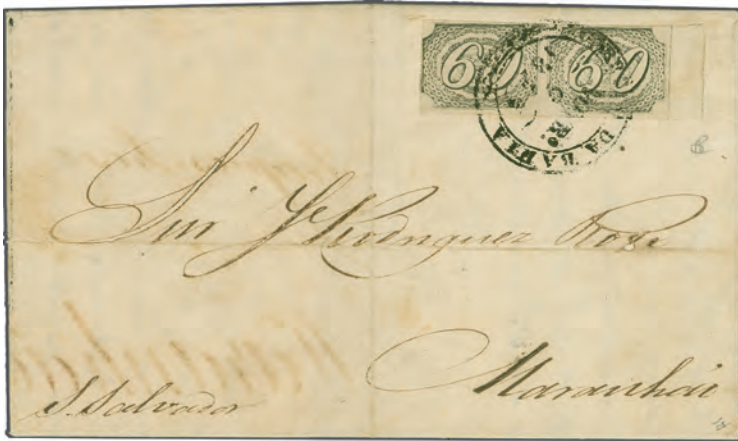 60 60
DA BAHIA
Snr Je Rodriguez Roza
Maranhão
S. Salvador